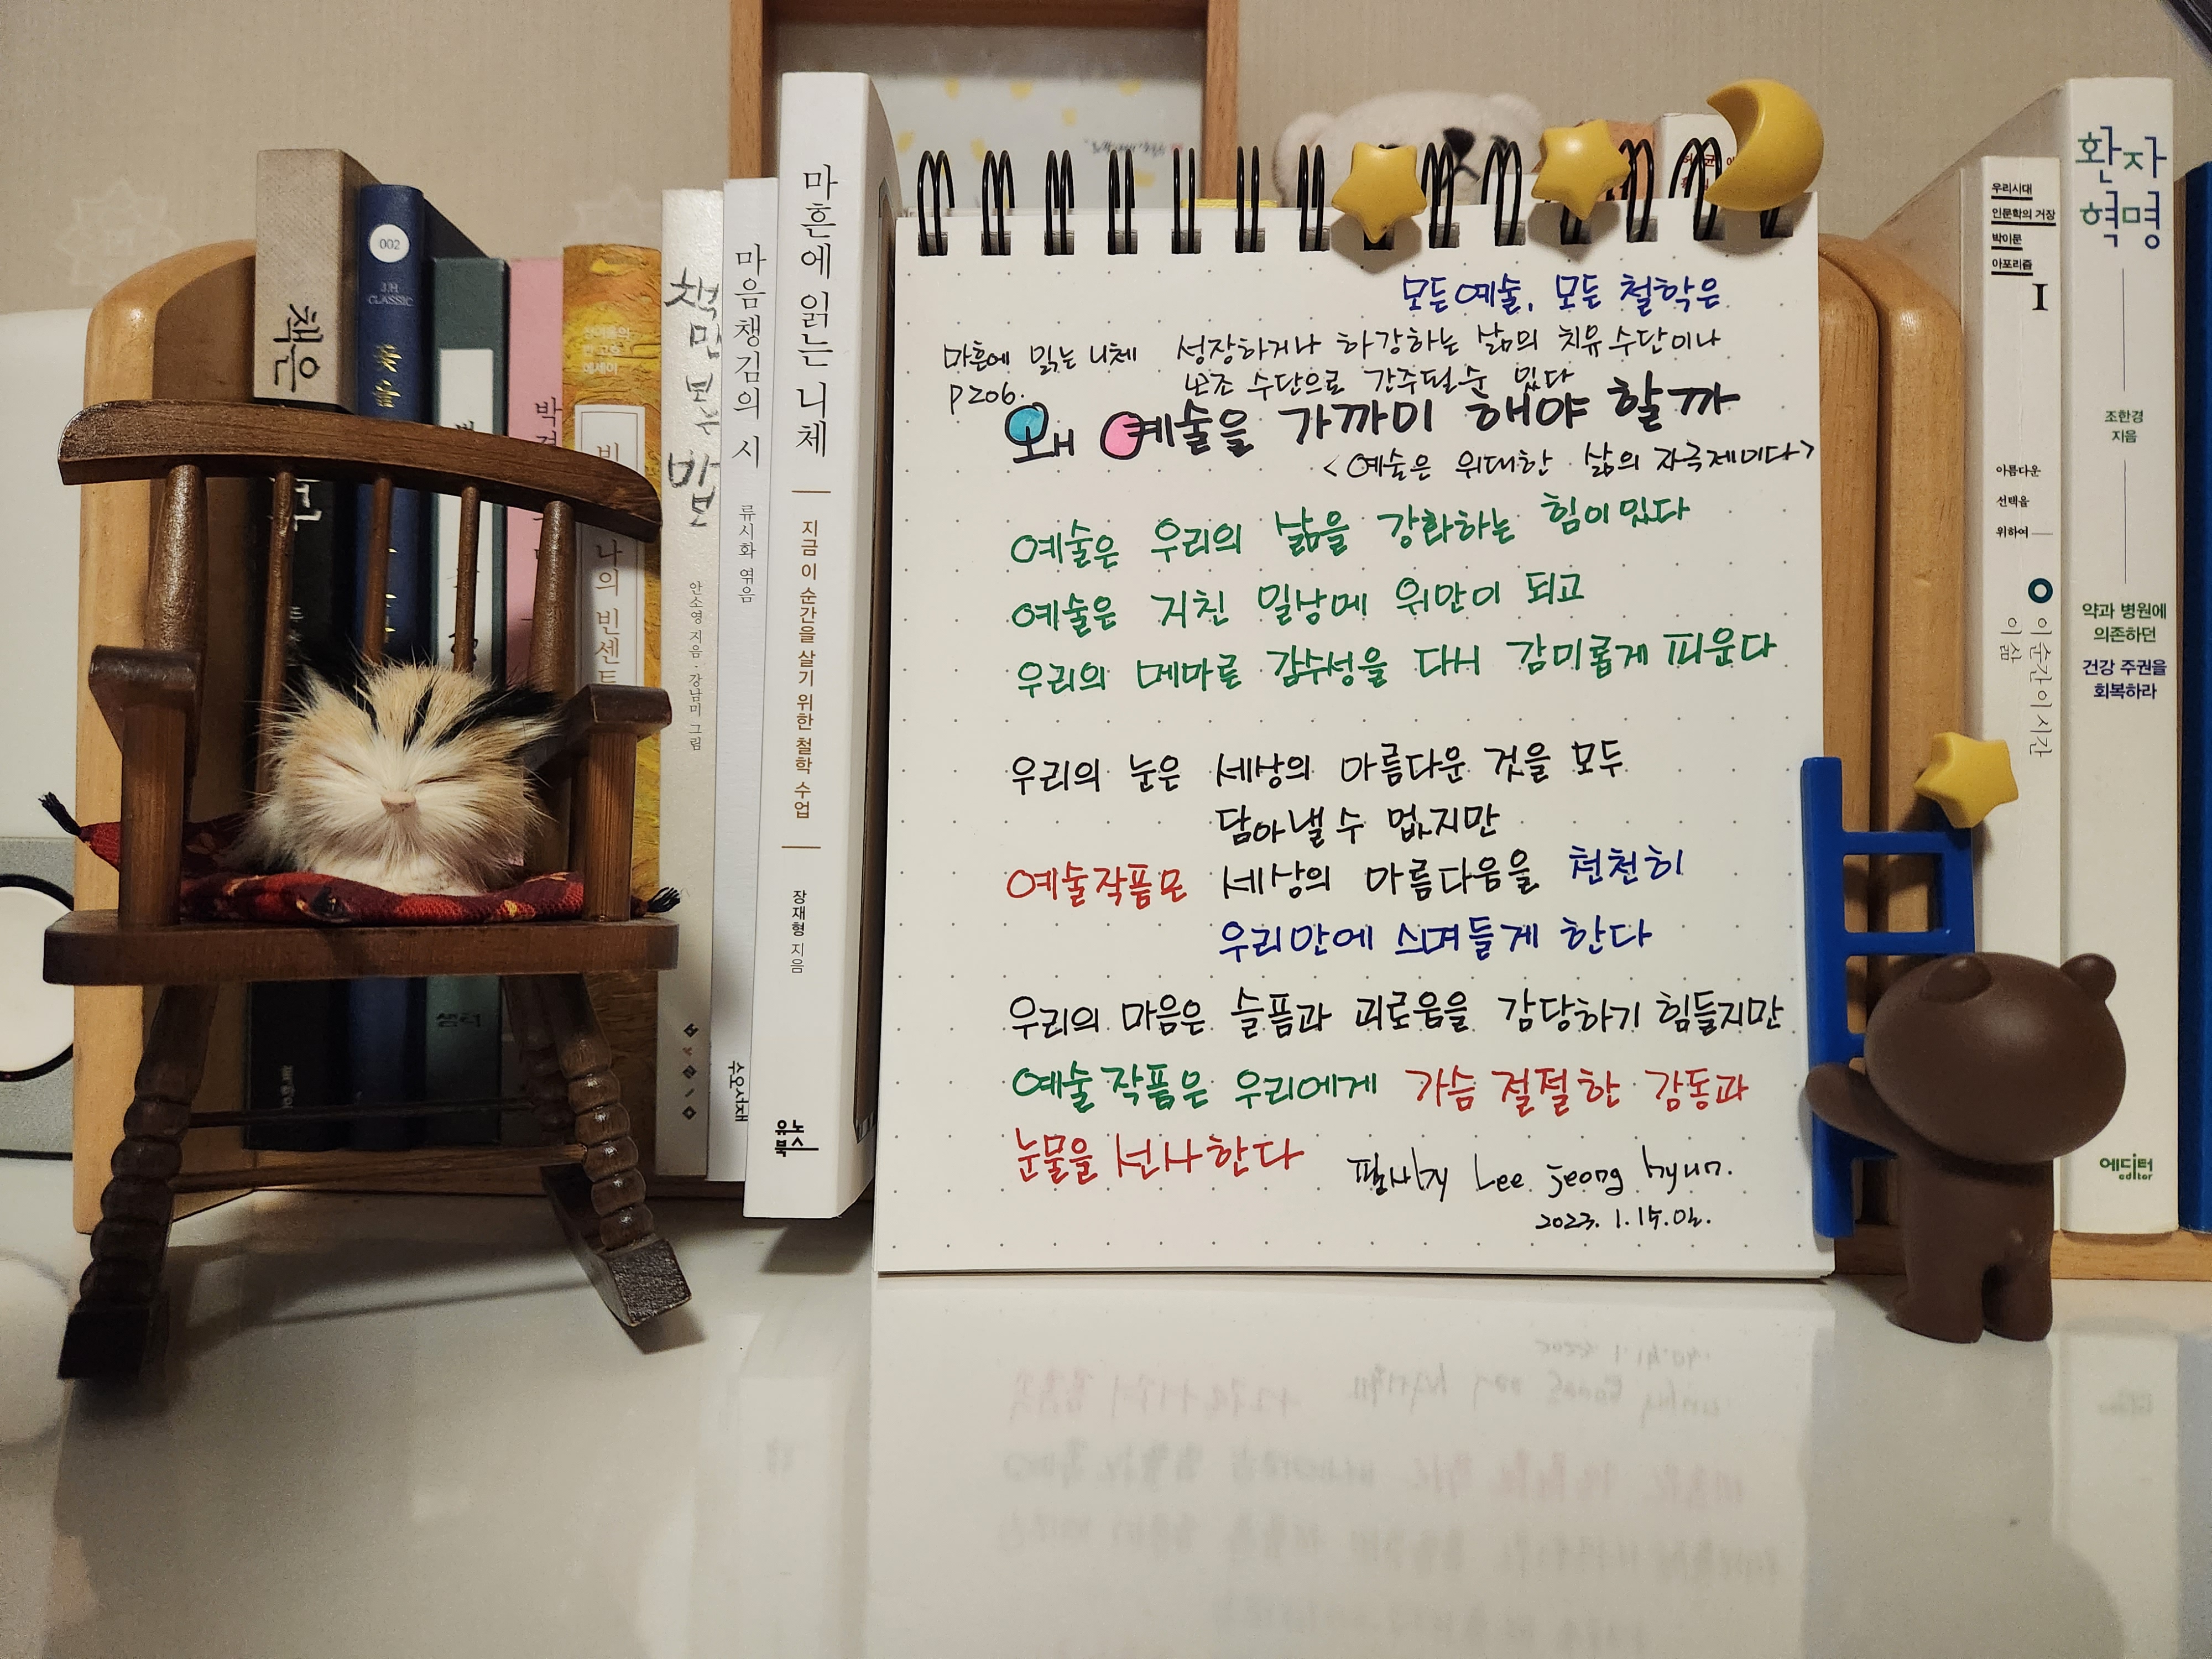 책은
002
J.H
CLASSIC
꽃을
나의 빈센트
샘터
책만 보는 바보
안소영 지음·강남미 그림
마음챙김의 시
류시화 엮음
수오서재
마흔에 읽는 니체
지금 이 순간을 살기 위한 철학 수업
장재형 지음
유노
북스
모든예술, 모든 철학은
마흔에 읽는 니체 성장하거나 하강하는 삶의 치유 수단이나
P206. 보조 수단으로 간주될 수 있다
왜 예술을 가까이 해야 할까
<예술은 위대한 삶의 자극제이다>
예술은 우리의 삶을 강화하는 힘이 있다
예술은 지친 일상에 위안이 되고
우리의 메마른 감수성을 다시 감미롭게 피운다
우리의 눈은 세상의 아름다운 것을 모두
담아낼 수 없지만
예술작품은 세상의 아름다움을 천천히
우리안에 스며들게 한다
우리의 마음은 슬픔과 괴로움을 감당하기 힘들지만
예술작품은 우리에게 가슴 절절한 감동과
눈물을 선사한다
필사by Lee jeong hyun.
2023. 1. 15. 일.
우리시대
인문학의 거장
박이문
아포리즘
I
아름다운
선택을
위하여
이 순간 이 시간
이 삶
환자
혁명
조한경
지음
약과 병원에
의존하던
건강 주권을
회복하라
에디터
editor